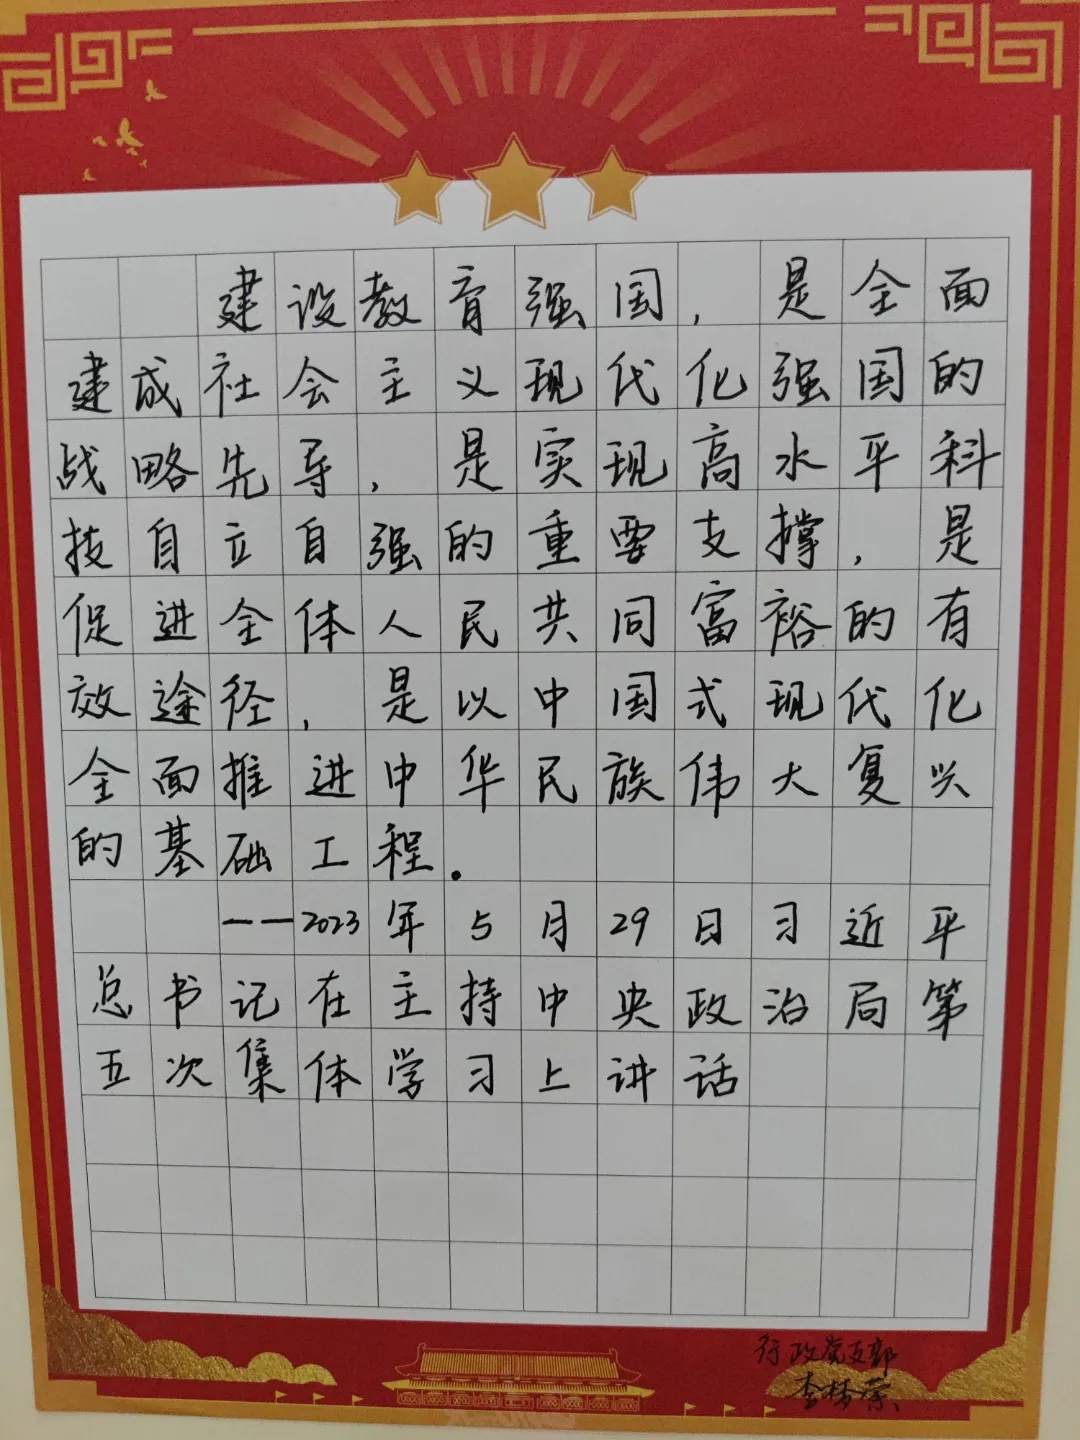 建设教育强国，是全面
建成社会主义现代化强国的
战略先导，是实现高水平科
技自立自强的重要支撑，是
促进全体人民共同富裕的有
效途径，是以中国式现代化
全面推进中华民族伟大复兴
的基础工程。
——2023年5月29日习近平
总书记在主持中央政治局第
五次集体学习上讲话
行政党支部
李梦荣